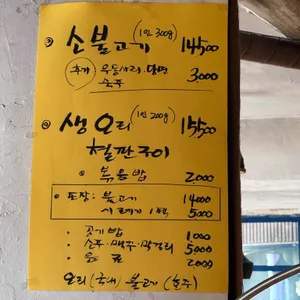 소불고기 (1인 300g) 14500
추가: 우동사리. 당면 3,000
숙주
생오리 (1인 200g) 15500
철판구이
볶음밥 2,000
포장: 불고기 14000
1팩 5000
공기밥 1000
소주·맥주·막걸리 5000
음료 2000
오리 (국내) 불고기 (호주)